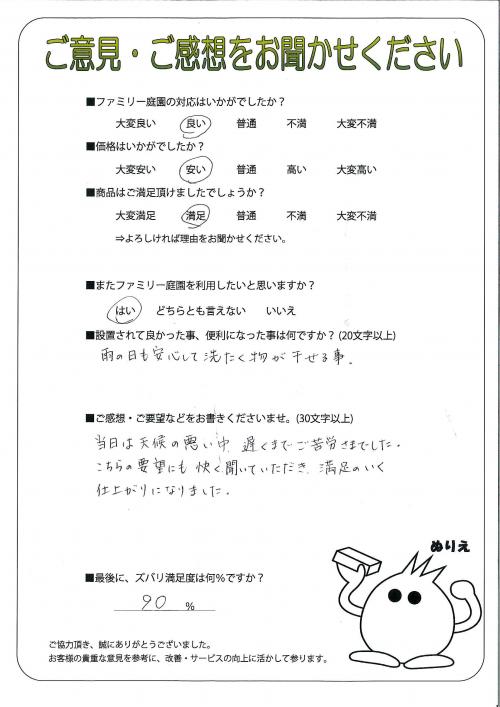 ご意見・ご感想をお聞かせください
■ファミリー庭園の対応はいかがでしたか？
大変良い 良い 普通 不満 大変不満
■価格はいかがでしたか？
大変安い 安い 普通 高い 大変高い
■商品はご満足頂けましたでしょうか？
大変満足 満足 普通 不満 大変不満
⇒よろしければ理由をお聞かせください。
■またファミリー庭園を利用したいと思いますか？
はい どちらとも言えない いいえ
■設置されて良かった事、便利になった事は何ですか？(20文字以上)
雨の日も安心して洗たく物が干せる事。
■ご感想・ご要望などをお書きくださいませ。(30文字以上)
当日は天候の悪い中、遅くまでご苦労さまでした。
こちらの要望にも快く聞いていただき、満足のいく
仕上がりになりました。
ぬりえ
■最後に、ズバリ満足度は何％ですか？
90 ％
ご協力頂き、誠にありがとうございました。
お客様の貴重な意見を参考に、改善・サービスの向上に活かして参ります。